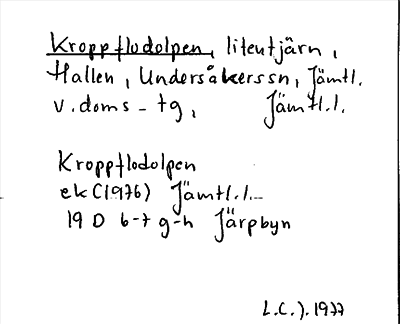 Kroppflodolpen, litentjärn,
Hallen, Undersåkerssn, Jämtl.
v. doms-tg, Jämtl.l.
Kroppflodolpen
ek (1976) Jämtl.l.
19 D 6-7 g-h Järpbyn
L.C.J. 1977